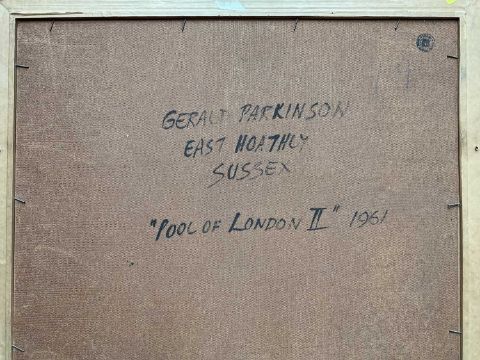 GERALD PARKINSON
EAST HOATHLY
SUSSEX
"POOL OF LONDON II" 1961